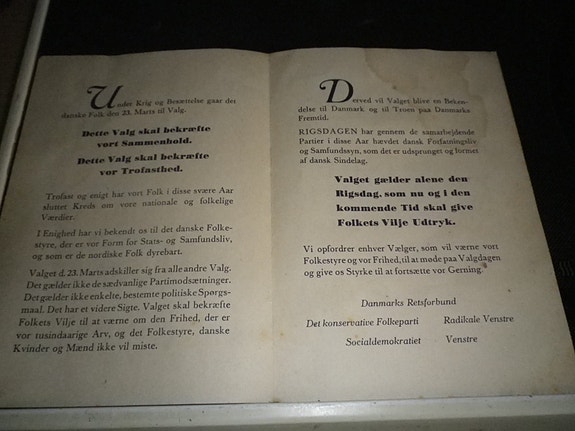 Under Krig og Besættelse gaar det
danske Folk den 23. Marts til Valg.
Dette Valg skal bekræfte
vort Sammenhold.
Dette Valg skal bekræfte
vor Trofasthed.
Trofast og enigt har vort Folk i disse svære Aar
sluttet Kreds om vore nationale og folkelige
Værdier.
I Enighed har vi bekendt os til det danske Folke-
styre, der er vor Form for Stats- og Samfundsliv,
og som er de nordiske Folk dyrebart.
Valget d. 23. Marts adskiller sig fra alle andre Valg.
Det gælder ikke de sædvanlige Partimodsætninger.
Det gælder ikke enkelte, bestemte politiske Spørgs-
maal. Det har et videre Sigte. Valget skal bekræfte
Folkets Vilje til at værne om den Frihed, der er
vor tusindaarige Arv, og det Folkestyre, danske
Kvinder og Mænd ikke vil miste.
Derved vil Valget blive en Beken-
delse til Danmark og til Troen paa Danmarks
Fremtid.
RIGSDAGEN har gennem de samarbejdende
Partier i disse Aar hævdet dansk Forfatningsliv
og Samfundssyn, som det er udsprunget og formet
af dansk Sindelag.
Valget gælder alene den
Rigsdag, som nu og i den
kommende Tid skal give
Folkets Vilje Udtryk.
Vi opfordrer enhver Vælger, som vil værne vort
Folkestyre og vor Frihed, til at møde paa Valgdagen
og give os Styrke til at fortsætte vor Gerning.
Danmarks Retsforbund
Det konservative Folkeparti Radikale Venstre
Socialdemokratiet Venstre